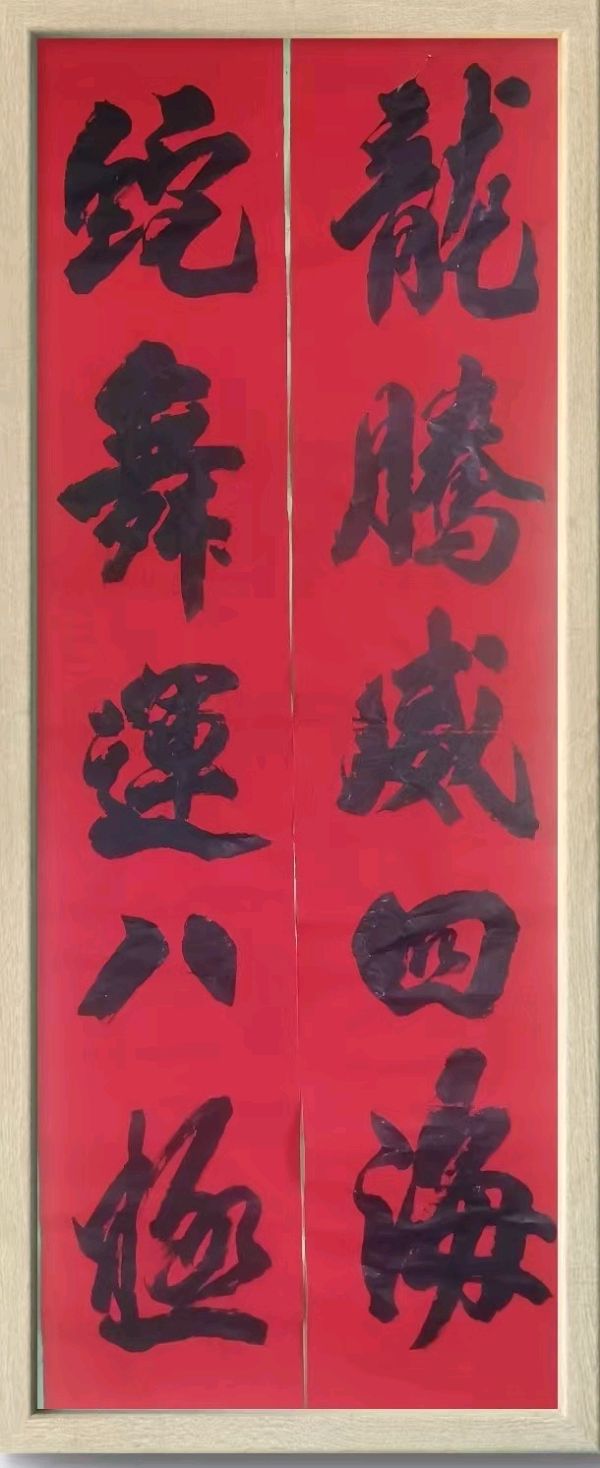 龍騰威四海
蛇舞運八極